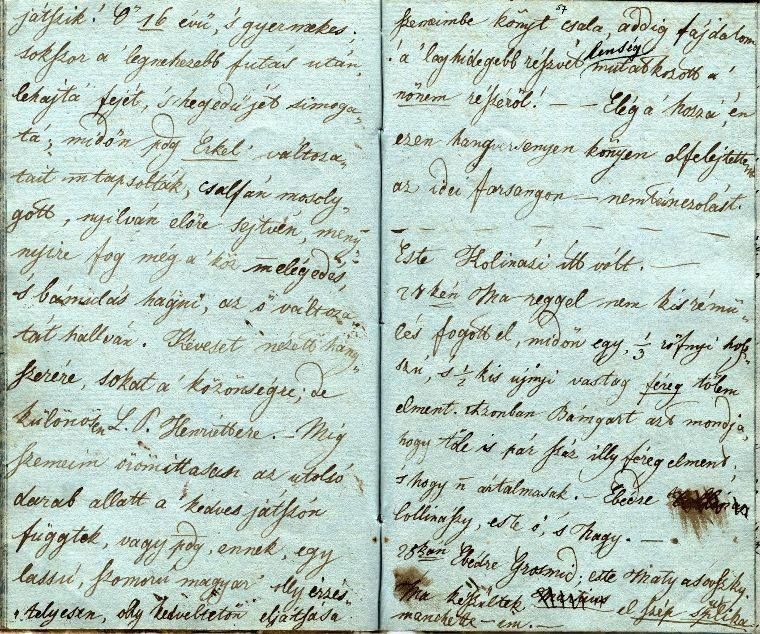 játszik! Ő 16 évű, 's gyermekes;
sokszor a' legnehezebb futás után,
lehajtá fejét, 's hegedűjét simoga-
tá; midőn pdg Erkel változa-
tait tapsolták, csalfán mosoly-
gott, nyilván előre sejtvén, meny-
nyire fog még a' köz melegedés,
's bámulás hágni, az ő változa-
tát hallván. Keveset nézett hang-
szerére, sokat a' közönségre; de
különösen L. P. Henriettere. – Mig
szemeim örömittasan az utolsó
darab allatt a' kedves játszón
függtek, vagy pdg ennek, egy
lassú, szomorú magyar illy érzés-
telyesen, olly kedveltetőn eljátsása
szemeimbe könyt csala, addig fájdalom
! a' leghidegebb részvétlenség mutatkozott a'
nőnem részéről! – – Elég a' hozzá, én
ezen hangversenyen könyen elfelejtettem
az idei farsangon – nem tánczolást.
Este Kolinási itt vólt. –
27kén Ma reggel nem kis rémü-
lés fogott el, midőn egy, 1/3 rőfnyi hosz-
szú, s 1/2 kis ujnyi vastag féreg tőlem
elment. Azonban Bámgart azt mondja,
hogy tőle is pár száz illy féreg elment,
's hogy n̄ ártalmasak. – Ebédre
Collinaszy, este ő, 's Nagy. –
28kan Ebédre Grosmid; este Matyasovszky.
Ma készültek el szép
manchette-em. –